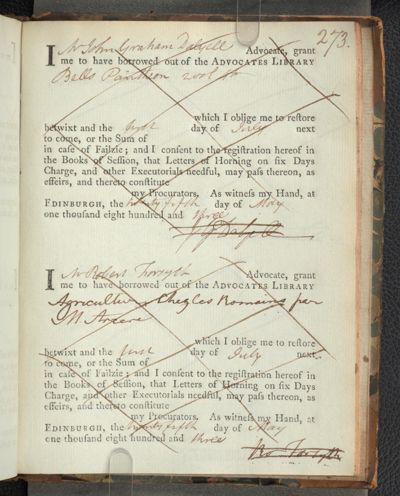 273.
I Mr John Graham Dalyell Advocate, grant
me to have borrowed out of the ADVOCATES LIBRARY
Bells Pantheon 2 vols
which I oblige me to reſtore
betwixt and the first day of July next
to come, or the Sum of
in caſe of Failzie; and I conſent to the regiſtration hereof in
the Books of Seſſion, that Letters of Horning on ſix Days
Charge, and other Executorials needful, may paſs thereon, as
effeirs, and thereto conſtitute
my Procurators. As witneſs my Hand, at
EDINBURGH, the twenty fifth day of May
one thouſand eight hundred and three
J G Dalyell
I Mr Robert Forsyth Advocate, grant
me to have borrowed out of the ADVOCATES LIBRARY
Agriculture Chez les Romains par
which I oblige me to reſtore
betwixt and the first day of July next
to come, or the Sum of
in caſe of Failzie; and I conſent to the regiſtration hereof in
the Books of Seſſion, that Letters of Horning on ſix Days
Charge, and other Executorials needful, may paſs thereon, as
effeirs, and thereto conſtitute
my Procurators. As witneſs my Hand, at
EDINBURGH, the twenty fifth day of May
one thouſand eight hundred and three
Ro Forsyth